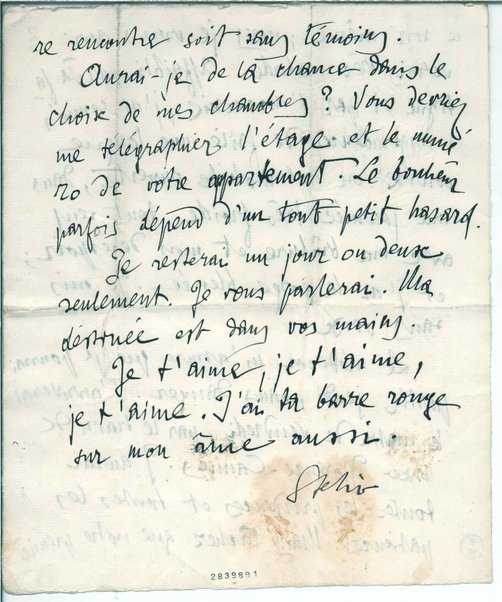 re rencontre soit sans témoins
Aurai-je de la chance dans le
choix de mes chambres? Vous devriez
me télégraphier l'étage et le numé
ro de votre appartement. Le bonheur
parfois dépend d'un tout petit hasard.
Je resterai un jour ou deux
seulement. Je vous parlerai. Ma
destinée est dans vos mains.
Je t'aime, je t'aime,
je t'aime. J'ai ta barre rouge
sur mon âme aussi.
Stelio
2839891